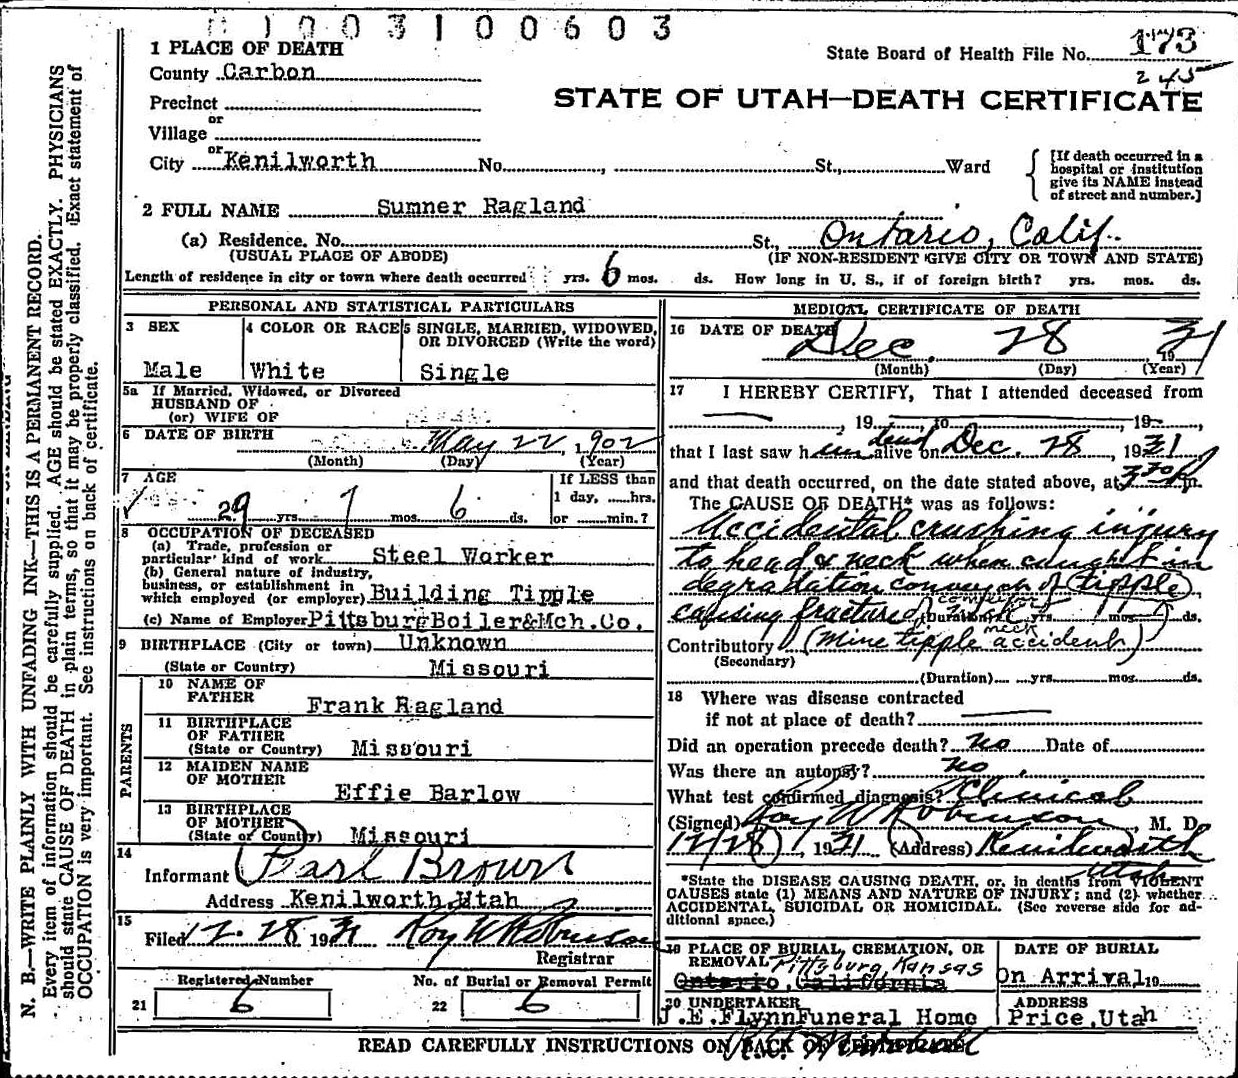 1003100603
1 PLACE OF DEATH
State Board of Health File No. 173
County Carbon
245
STATE OF UTAH—DEATH CERTIFICATE
Precinct
or
Village
or
City Kenilworth No. , St., Ward
[If death occurred in a hospital or institution give its NAME instead of street and number.]
2 FULL NAME Sumner Ragland
(a) Residence. No. St., Ontario, Calif.
(USUAL PLACE OF ABODE) (IF NON-RESIDENT GIVE CITY OR TOWN AND STATE)
Length of residence in city or town where death occurred yrs. 6 mos. ds. How long in U. S., if of foreign birth? yrs. mos. ds.
PERSONAL AND STATISTICAL PARTICULARS
3 SEX
Male
4 COLOR OR RACE
White
5 SINGLE, MARRIED, WIDOWED, OR DIVORCED (Write the word)
Single
5a If Married, Widowed, or Divorced
HUSBAND OF
(or) WIFE OF
6 DATE OF BIRTH May 22, 1902
(Month) (Day) (Year)
7 AGE
29 yrs. 7 mos. 6 ds.
If LESS than
1 day, ......hrs.
or .......min.?
8 OCCUPATION OF DECEASED
(a) Trade, profession or
particular kind of work Steel Worker
(b) General nature of industry,
business, or establishment in
which employed (or employer) Building Tipple
(c) Name of Employer Pittsburg Boiler&Mch.Co.
9 BIRTHPLACE (City or town) Unknown
(State or Country) Missouri
PARENTS
10 NAME OF
FATHER
Frank Ragland
11 BIRTHPLACE
OF FATHER
(State or Country) Missouri
12 MAIDEN NAME
OF MOTHER
Effie Barlow
13 BIRTHPLACE
OF MOTHER
(State or Country) Missouri
14
Informant Pearl Brown
Address Kenilworth, Utah
15
Filed 12-28 1931 Roy W Robinson
Registrar
Registered Number
21 6
No. of Burial or Removal Permit
22 6
MEDICAL CERTIFICATE OF DEATH
16 DATE OF DEATH
Dec. 28 1931
(Month) (Day) (Year)
17 I HEREBY CERTIFY, That I attended deceased from
, 19 , to , 19 ,
that I last saw him dead alive on Dec. 28, 1931
and that death occurred, on the date stated above, at 330 P m.
The CAUSE OF DEATH* was as follows:
Accidental crushing injury
to head & neck when caught in
degradation conveyor of (tipple)
causing fracture of neck
(Duration) yrs. mos. ds.
Contributory (Mine tipple accident)
(Secondary)
(Duration) yrs. mos. ds.
18 Where was disease contracted
if not at place of death?
Did an operation precede death? No Date of
Was there an autopsy? no
What test confirmed diagnosis? Clinical
(Signed) Roy W Robinson, M. D.
12/28, 1931 (Address) Kenilworth
Utah
*State the DISEASE CAUSING DEATH, or, in deaths from VIOLENT
CAUSES state (1) MEANS AND NATURE OF INJURY; and (2) whether
ACCIDENTAL, SUICIDAL OR HOMICIDAL. (See reverse side for ad-
ditional space.)
19 PLACE OF BURIAL, CREMATION, OR
REMOVAL Pittsburg, Kansas
Ontario, California
DATE OF BURIAL
On Arrival 19
20 UNDERTAKER
J.E.Flynn Funeral Home
ADDRESS
Price, Utah
READ CAREFULLY INSTRUCTIONS ON BACK OF CERTIFICATE
N. B.—WRITE PLAINLY WITH UNFADING INK—THIS IS A PERMANENT RECORD.
Every item of information should be carefully supplied. AGE should be stated EXACTLY. PHYSICIANS
should state CAUSE OF DEATH in plain terms, so that it may be properly classified. Exact statement of
OCCUPATION is very important. See instructions on back of certificate.